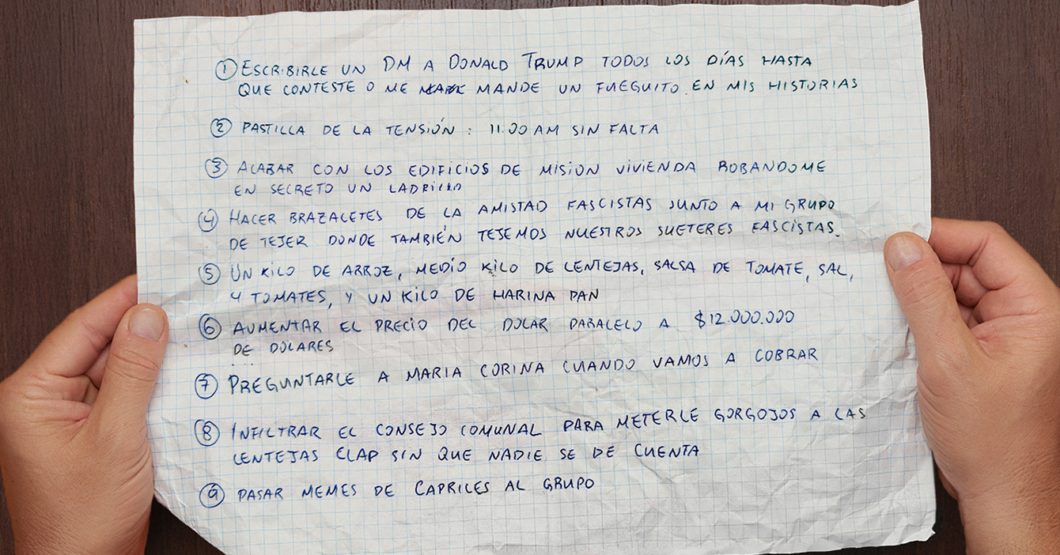 ① ESCRIBIRLE UN DM A DONALD TRUMP TODOS LOS DÍAS HASTA
QUE CONTESTE O ME MANDE UN FUEGUITO EN MIS HISTORIAS
② PASTILLA DE LA TENSIÓN : 11:00 AM SIN FALTA
③ ACABAR CON LOS EDIFICIOS DE MISION VIVIENDA ROBANDOME
EN SECRETO UN LADRILLO
④ HACER BRAZALETES DE LA AMISTAD FASCISTAS JUNTO A MI GRUPO
DE TEJER DONDE TAMBIÉN TEJEMOS NUESTROS SUETERES FASCISTAS.
⑤ UN KILO DE ARROZ, MEDIO KILO DE LENTEJAS, SALSA DE TOMATE, SAL,
4 TOMATES, Y UN KILO DE HARINA PAN
⑥ AUMENTAR EL PRECIO DEL DOLAR PARALELO A $12.000.000
DE DOLARES
⑦ PREGUNTARLE A MARIA CORINA CUANDO VAMOS A COBRAR
⑧ INFILTRAR EL CONSEJO COMUNAL PARA METERLE GORGOJOS A LAS
LENTEJAS CLAP SIN QUE NADIE SE DE CUENTA
⑨ PASAR MEMES DE CAPRILES AL GRUPO